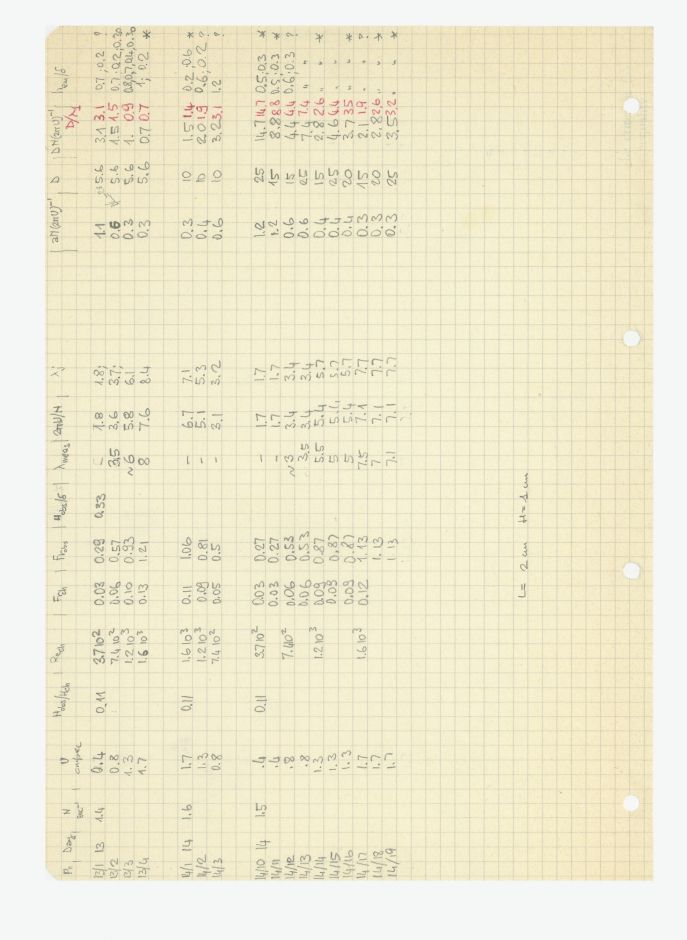 Ph | Day | N sec⁻¹ | U cm/sec | Hobs/Hch | Rech | Fch | Fhobs | Hobs/δ | λmeas | 2πU/N | λj | 2π(2πU)⁻¹ | D | DN(2πU)⁻¹ D/λj | hew/δ
13/1 13 1.4 0.4 0.11 3.7 10² 0.03 0.29 0.33 – 1.8 1.8; 1.1 5.6 3.1 3.1 0.7; 0.2 ?
13/2 0.8 7.4 10² 0.06 0.57 3.5 3.6 3.7; 0.6 5.6 1.5 1.5 0.7; 0.2, 0.30 ?
13/3 1.3 1.2 10³ 0.10 0.93 ~6 5.8 6.1 0.3 5.6 1. 0.9
13/4 1.7 1.6 10³ 0.13 1.21 8 7.6 8.4 0.3 5.6 0.7 0.7 1; 0.2 *
14/1 14 1.6 1.7 0.11 1.6 10³ 0.11 1.06 – 6.7 7.1 0.3 10 1.5 1.4 0.2; 0.6 *
14/2 1.3 1.2 10³ 0.09 0.81 – 5.1 5.3 0.4 10 2.0 1.9 0.6; 0.2 ?
14/3 0.8 7.4 10² 0.05 0.5 – 3.1 3.2 0.6 10 3.2 3.1 1.2 ?
14/10 14 1.5 .4 0.11 3.7 10² 0.03 0.27 – 1.7 1.7 1.2 25 14.7 14.7 0.5; 0.3 *
14/11 .4 0.03 0.27 – 1.7 1.7 1.2 15 8.8 8.8 0.5; 0.3 *
14/12 .8 7.4 10² 0.06 0.53 ~3 3.4 3.4 0.6 15 4.4 4.4 0.6; 0.3 ?
14/13 .8 0.06 0.53 3.5 3.4 3.4 0.6 25 7.4 7.4 " "
14/14 1.3 1.2 10³ 0.09 0.87 5.5 5.4 5.7 0.4 15 2.8 2.6 " " *
14/15 1.3 0.09 0.87 5 5.4 5.7 0.4 25 4.6 4.4 " "
14/16 1.3 0.09 0.87 5 5.4 5.7 0.4 20 3.7 3.5 " " *
14/17 1.7 1.6 10³ 0.12 1.13 7.5 7.1 7.7 0.3 15 2.1 1.9 " " ?
14/18 1.7 1.13 7 7.1 7.7 0.3 20 2.8 2.6 " " *
14/19 1.7 1.13 7.1 7.1 7.7 0.3 25 3.5 3.2 " " *
L = 2 cm H = 1 cm